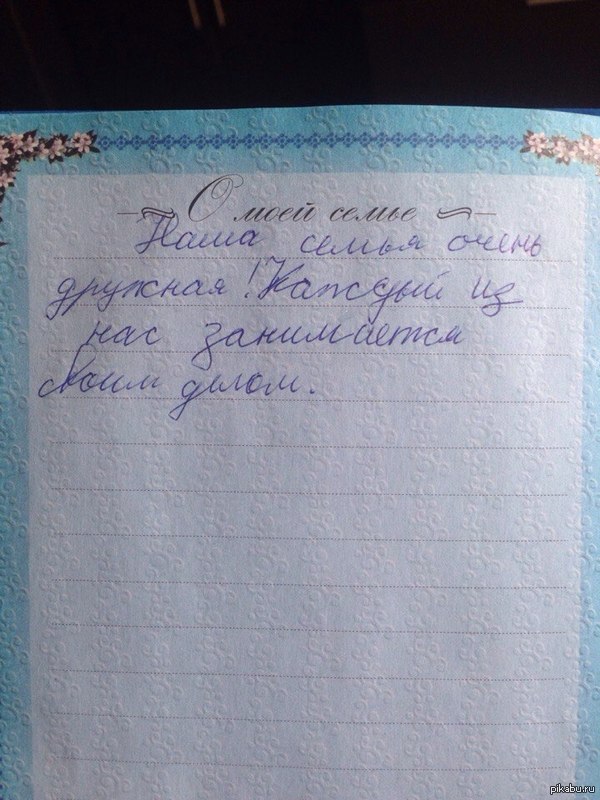 О моей семье
Наша семья очень
дружная! Каждый из
нас занимается
своим делом.
pikabu.ru